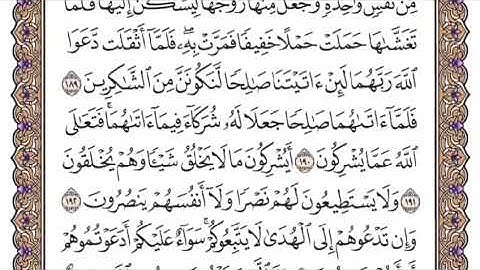 مِن نَّفْسٍ وَٰحِدَةٍ وَجَعَلَ مِنْهَا زَوْجَهَا لِيَسْكُنَ إِلَيْهَا فَلَمَّا
تَغَشَّىٰهَا حَمَلَتْ حَمْلًا خَفِيفًا فَمَرَّتْ بِهِۦ فَلَمَّآ أَثْقَلَت دَّعَوَا
ٱللَّهَ رَبَّهُمَا لَئِنْ ءَاتَيْتَنَا صَٰلِحًا لَّنَكُونَنَّ مِنَ ٱلشَّٰكِرِينَ ١٨٩
فَلَمَّآ ءَاتَىٰهُمَا صَٰلِحًا جَعَلَا لَهُۥ شُرَكَآءَ فِيمَآ ءَاتَىٰهُمَا فَتَعَٰلَى
ٱللَّهُ عَمَّا يُشْرِكُونَ ١٩٠ أَيُشْرِكُونَ مَا لَا يَخْلُقُ شَيْـًٔا وَهُمْ يُخْلَقُونَ
١٩١ وَلَا يَسْتَطِيعُونَ لَهُمْ نَصْرًا وَلَآ أَنفُسَهُمْ يَنصُرُونَ ١٩٢
وَإِن تَدْعُوهُمْ إِلَى ٱلْهُدَىٰ لَا يَتَّبِعُوكُمْ سَوَآءٌ عَلَيْكُمْ أَدَعَوْتُمُوهُمْ